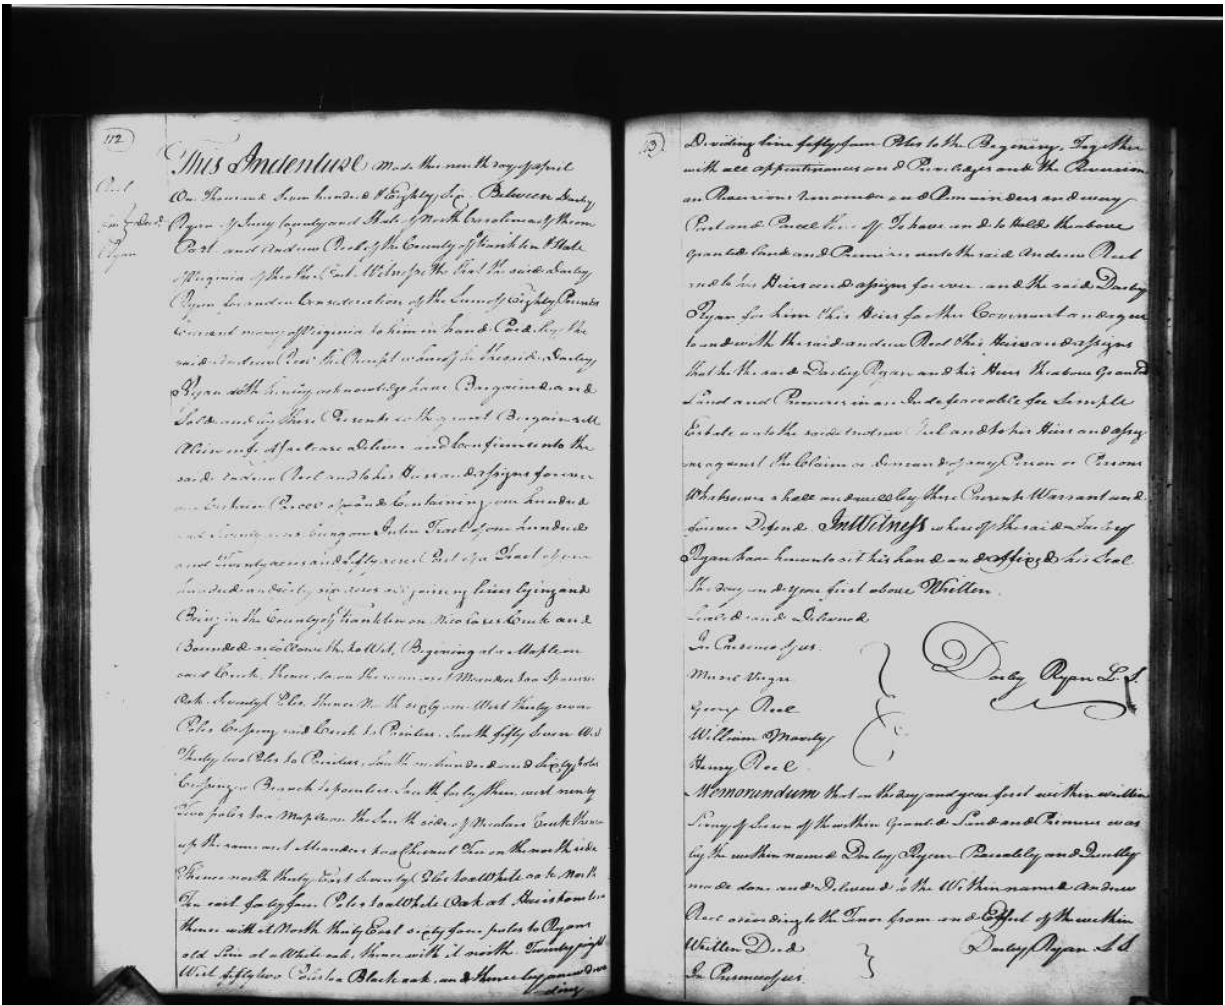 112
This Indenture Made the ninth day of April
One Thousand Seven hundred & Eighty Six Between Darby
Ryan of Surry County and State of North Carolina of the one
Part and Andrew Reel of the County of Franklin & State
of Virginia of the other Part Witnesseth that the said Darby
Ryan for and in Consideration of the Sum of Eighty Pounds
Current money of Virginia to him in hand Paid by the
said Andrew Reel the Receipt whereof he the said Darby
Ryan doth hereby acknowledge have Bargained and
Sold and by these Presents doth grant Bargain Sell
Alien enfeoff release deliver and Confirm unto the
said Andrew Reel and to his Heirs and assigns forever
one Certain Parcel of Land Containing one hundred
and Seventy acres being an Intire Tract of one hundred
and Twenty acres and fifty acres Part of a Tract of one
hundred and sixty six acres adjoining lines lying and
Being in the County of Franklin on Nicolases Creek and
Bounded as followeth towit, Begining at a Maple on
said Creek, thence down the same as it Meanders to a Spanish
Oak Seventy Poles, thence North sixty one West thirty seven
Poles Crossing said Creek to Pointers South fifty Seven West
thirty two Poles to Pointers, South one hundred and Sixty poles
Crossing a Branch to pointers South forty three west ninety
Two poles to a Maple on the South side of Nicolases Creek thence
up the same as it Meanders to a Chesnut Tree on the north side
Thence north thirty East Seventy Poles to a White oak North
Ten east forty four Poles to a White Oak at Hairstons line
thence with it North thirty East sixty four poles to Ryans
old Line at a White oak, thence with it north Twenty eight
West fifty two Poles to a Black oak and thence by a new Divi
ding
Reel
from } Deed
Ryan
113
Dividing line fifty four Poles to the Begining, Together
with all appurtinances and Priviledges and the Reversion
an Reversions remainder and Remainders and every
Part and Parcel thereof To have and to Hold the above
granted Land and Premises unto the said Andrew Reel
and to his Heirs and assigns forever and the said Darby
Ryan for him & his Heirs further Covenant and agree
to and with the said Andrew Reel & his Heirs and assigns
that he the said Darby Ryan and his Heirs the above Granted
Land and Premises in an Indefeaceable fee Simple
Estate unto the said Andrew Reel and to his Heirs and assig
ns against the Claim or demand of any Person or Persons
Whatsoever shall and will by these Presents Warrant and
forever Defend In Witness whereof the said Darby
Ryan have hereunto set his hand and affixed his Seal
the day and year first above Written.
Sealed and Delivered
In Presence of us.
George Reel
William Mavity
Henry Reel
Darby Ryan L.S.
Memorundum that on the day and year first within written
Livery of Seisen of the within Granted Land and Premises was
by the within named Darby Ryan Peaceably and Quietly
made done and Delivered to the Within named Andrew
Reel according to the Tenor from and Effect of the within
Written Deed
In Presence of us
Darby Ryan L.S.